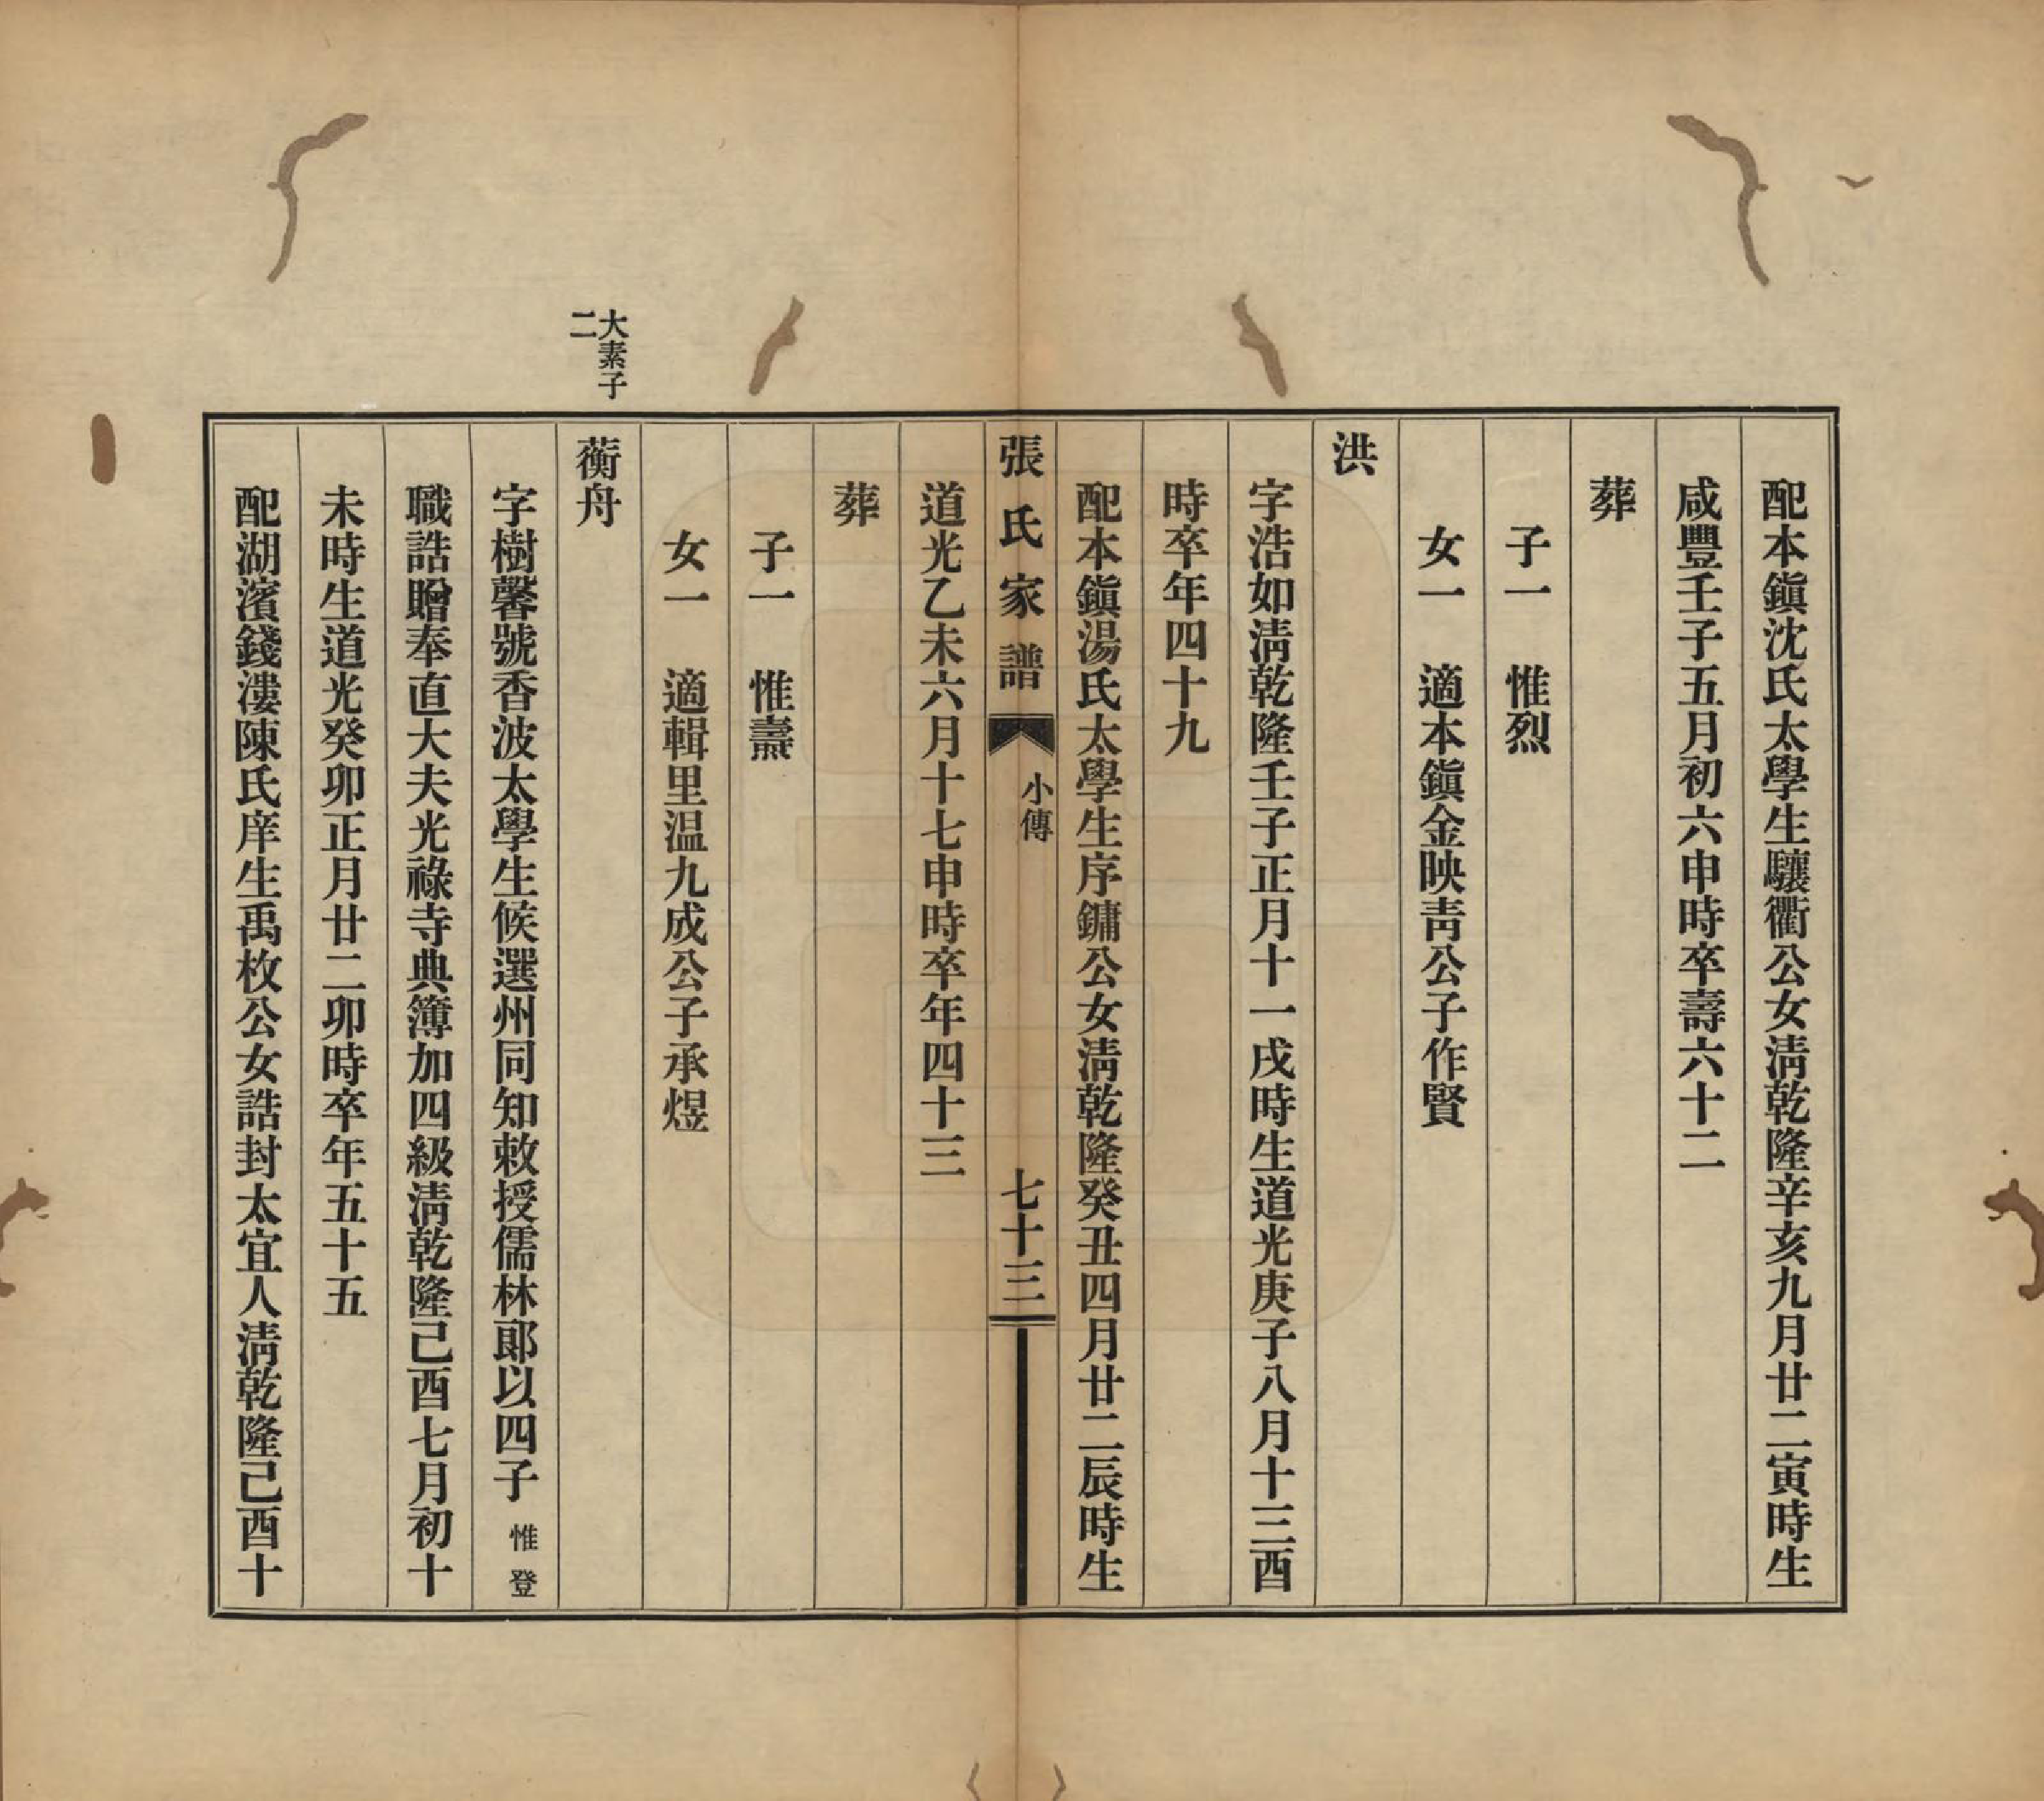 配本鎭沈氏太學生驤衢公女淸乾隆辛亥九月廿二寅時生
咸豐壬子五月初六申時卒壽六十二
葬
子一　惟烈
女一　適本鎭金映靑公子作賢
洪
字浩如淸乾隆壬子正月十一戌時生道光庚子八月十三酉
時卒年四十九
配本鎭湯氏太學生序鏞公女淸乾隆癸丑四月廿二辰時生
張氏家譜　小傳　七十三
道光乙未六月十七申時卒年四十三
葬
子一　惟壽
女一　適輯里温九成公子承煜
大素子
二
蘅舟
字樹馨號香波太學生候選州同知敕授儒林郞以四子惟登
職誥贈奉直大夫光祿寺典簿加四級淸乾隆己酉七月初十
未時生道光癸卯正月廿二卯時卒年五十五
配湖濱錢漊陳氏庠生禹枚公女誥封太宜人淸乾隆己酉十